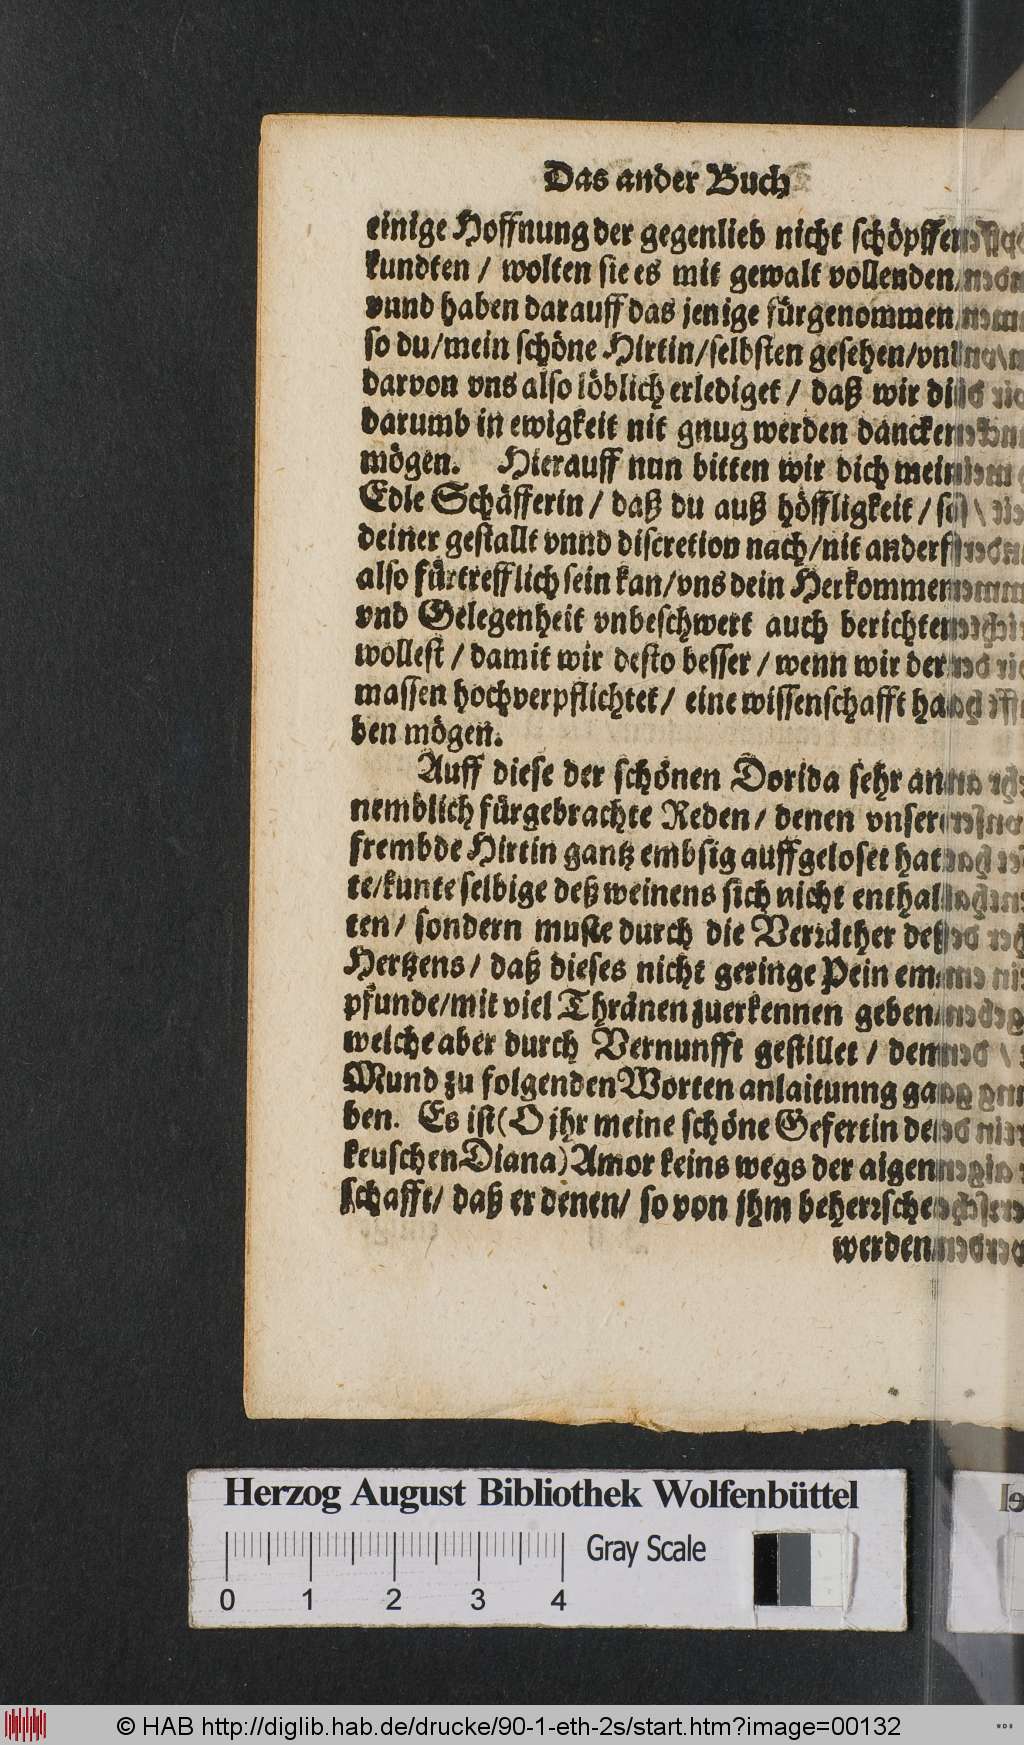 Das ander Buch
einige Hoffnung der gegenlieb nicht schöpffen
kundten / wolten sie es mit gewalt vollenden/
vnnd haben darauff das jenige fürgenommen/
so du/mein schöne Hirtin/selbsten gesehen/vnd
darvon vns also löblich erlediget / daß wir dir
darumb in ewigkeit nit gnug werden dancken
mögen. Hierauff nun bitten wir dich mein
Edle Schäfferin / daß du auß höffligkeit / so
deiner gestallt vnnd discretion nach/nit anderst
also fürtrefflich sein kan/vns dein Herkommen
vnd Gelegenheit vnbeschwert auch berichten
wollest / damit wir desto besser / wenn wir der
massen hochverpflichtet / eine wissenschafft ha
ben mögen.
Auff diese der schönen Dorida sehr an
nemblich fürgebrachte Reden / denen vnsere
frembde Hirtin gantz embsig auffgeloset hat
te/kunte selbige deß weinens sich nicht enthal
ten / sondern muste durch die Verräther deß
Hertzens / daß dieses nicht geringe Pein em
pfunde/mit viel Thränen zuerkennen geben/
welche aber durch Vernunfft gestillet / dem
Mund zu folgenden Worten anlaitunng ga
ben. Es ist (O jhr meine schöne Gefertin der
keuschen Diana) Amor keins wegs der aigen
schafft/ daß er denen/ so von jhm beherrschet
werden/
Herzog August Bibliothek Wolfenbüttel
Gray Scale
0 1 2 3 4
© HAB http://diglib.hab.de/drucke/90-1-eth-2s/start.htm?image=00132